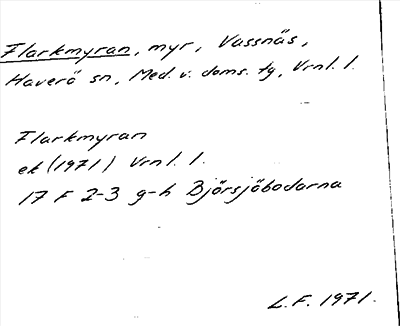 Flarkmyran, myr, Vassnäs,
Haverö sn, Med. v. doms. tg, Vrnl. l.
Flarkmyran
ek (1971) Vrnl. l.
17 F 2-3 g-h Björsjöbodarna
L.F. 1971.